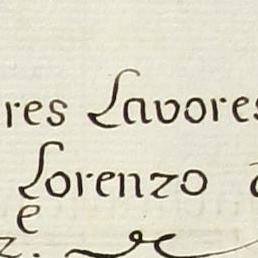 res Lavores
Lorenzo
e
z. de